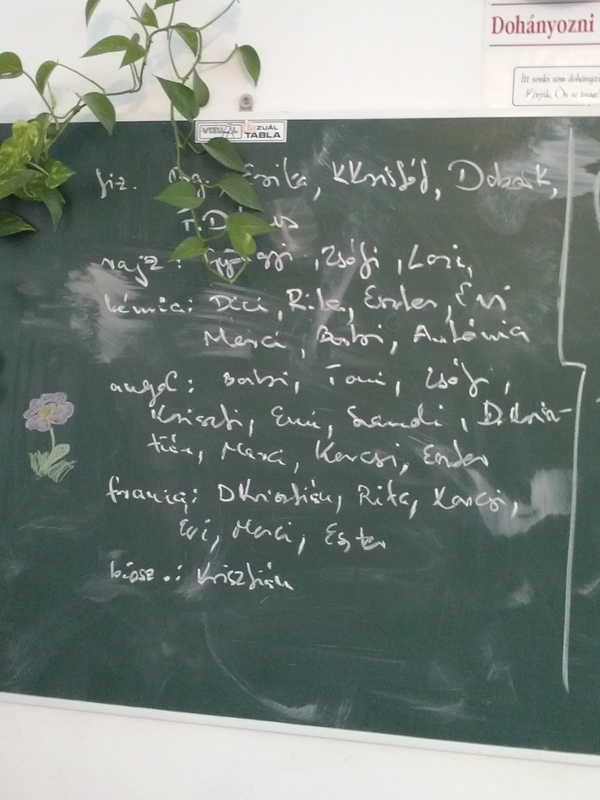 Dohányozni
Itt senki sem dohányzi
Kérjük, Ön se tegye!
VIZUÁL TABLA
fiz. Erika, KKristóf,
rajz: Zsófi, Lori,
kémia: Dici, Rita, Eszter, Évi
Merci, Barbi, Antónia
angol: Barbi, Tomi, Zsófi,
Kriszti, Emi, Sandi, D.Krisz-
tián, Marci, Karcsi, Eszter
francia: DKrisztián, Rita, Karcsi,
Évi, Merci, Eszter
biosz.: Krisztián